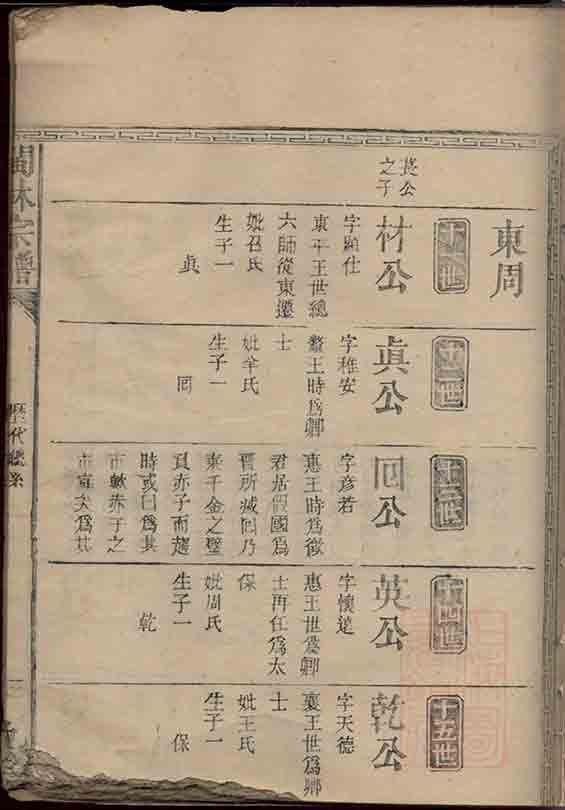 東周
萇公
之子
十一世
材公
字顯仕
東平王世總
六師從東遷
妣召氏
生子一
眞
十二世
眞公
字稚安
釐王時爲卿
士
妣羋氏
生子一
囘
十三世
囘公
字彥若
惠王時爲徵
君居假國爲
晉所滅囘乃
棄千金之璧
負赤子而趨
時或曰爲其
市歟赤子之
市寡矣爲其
十四世
英公
字懷遠
惠王世爲卿
士再任爲太
保
妣周氏
生子一
乾
十五世
乾公
字天德
襄王世爲卿
士
妣王氏
生子一
保
林宗譜
歷代總系